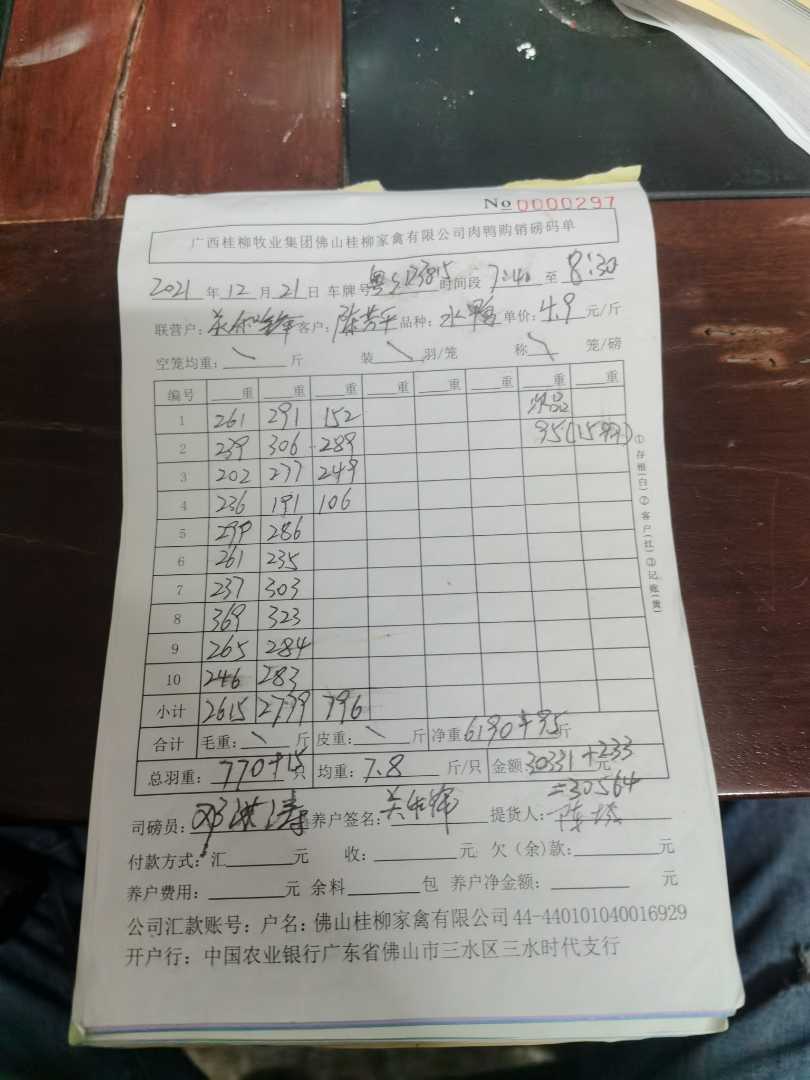 No 0000297
广西桂柳牧业集团佛山桂柳家禽有限公司肉鸭购销磅码单
2021 年 12 月 21 日 车牌号 时间段 7:40 至 8:30
联营户: 客户: 品种: 水鸭 单价: 4.9 元/斤
空笼均重: \ 斤 装 \ 羽/笼 称 \ 笼/磅
编号 重 重 重 重 重 重 重 重
1 261 291 152 次品
2 239 306 289 95(15只)
3 202 277 249
4 236 191 106
5 299 286
6 261 235
7 237 303
8 369 323
9 265 284
10 246 283
小计 2615 2779 796
合计 毛重: \ 斤 皮重: \ 斤 净重 6190+95 斤
总羽重: 770+15 只 均重: 7.8 斤/只 金额: 30331+233 元
=30564
司磅员: 邓洪涛 养户签名: 提货人:
付款方式: 汇 元 收: 元 欠(余)款: 元
养户费用: 元 余料 包 养户净金额: 元
公司汇款账号: 户名: 佛山桂柳家禽有限公司 44-440101040016929
开户行: 中国农业银行广东省佛山市三水区三水时代支行
①存根(白)②客户(红)③记账(黄)